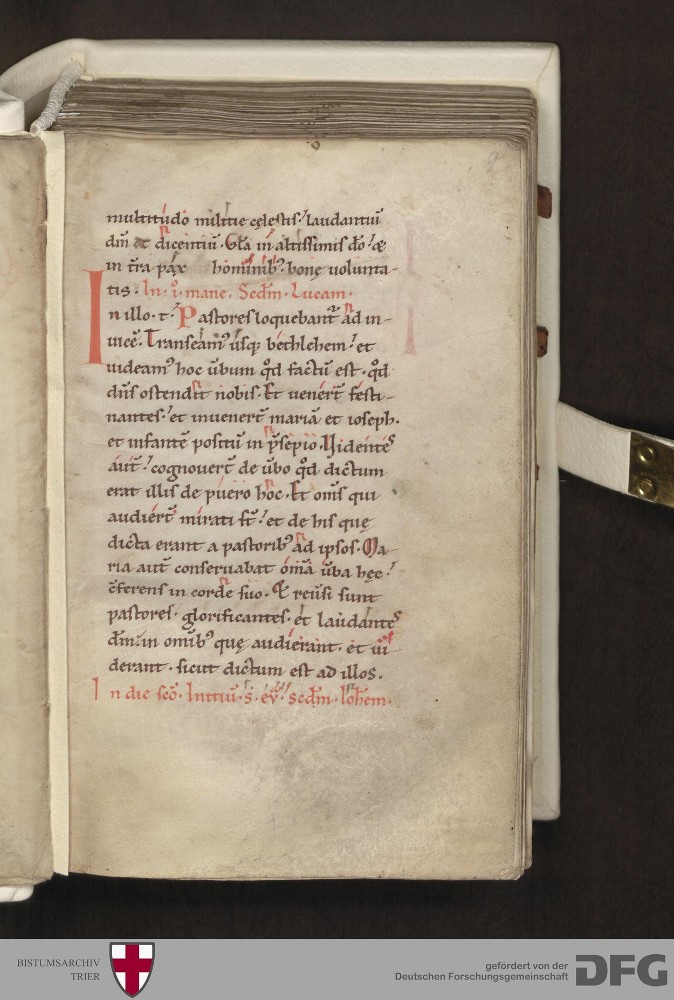 2
multitudo militie celestis. laudantiū
dm̄ et dicentiū. Gl̄a in altissimis dō. &
in t̄ra pax hominibꝰ. bonę volunta-
tis. In .i. mane. Scdm̄. Lucam.
In illo. t. Pastores loquebant᷑ ad in-
uicē. Transeamꝰ usq; bethlehem. et
uideamꝰ hoc ūbum qd̄ factū est. qd̄
dn̄s ostendit nobis. Et uenert̄ festi-
nantes. et inuenert̄ mariā et ioseph.
et infantē positū in p̄sepio. Videntēs
aut̄. cognouert̄ de ūbo qd̄ dictum
erat illis de puero hoc. Et om̄s qui
audiert̄ mirati st̄. et de his quę
dicta erant a pastoribꝰ ad ipsos. Ma-
ria aut̄ conseruabat om̄ā ūba hęc.
c̄ferens in corde suo. Et reūsi sunt
pastores. glorificantes. et laudantes
dm̄. in omībꝰ quę audierant. et ui-
derant. sicut dictum est ad illos.
In die scō. Initiū. s. ev̄. scdm̄. Ioh̄em.
BISTUMSARCHIV
TRIER
gefördert von der
Deutschen Forschungsgemeinschaft
DFG